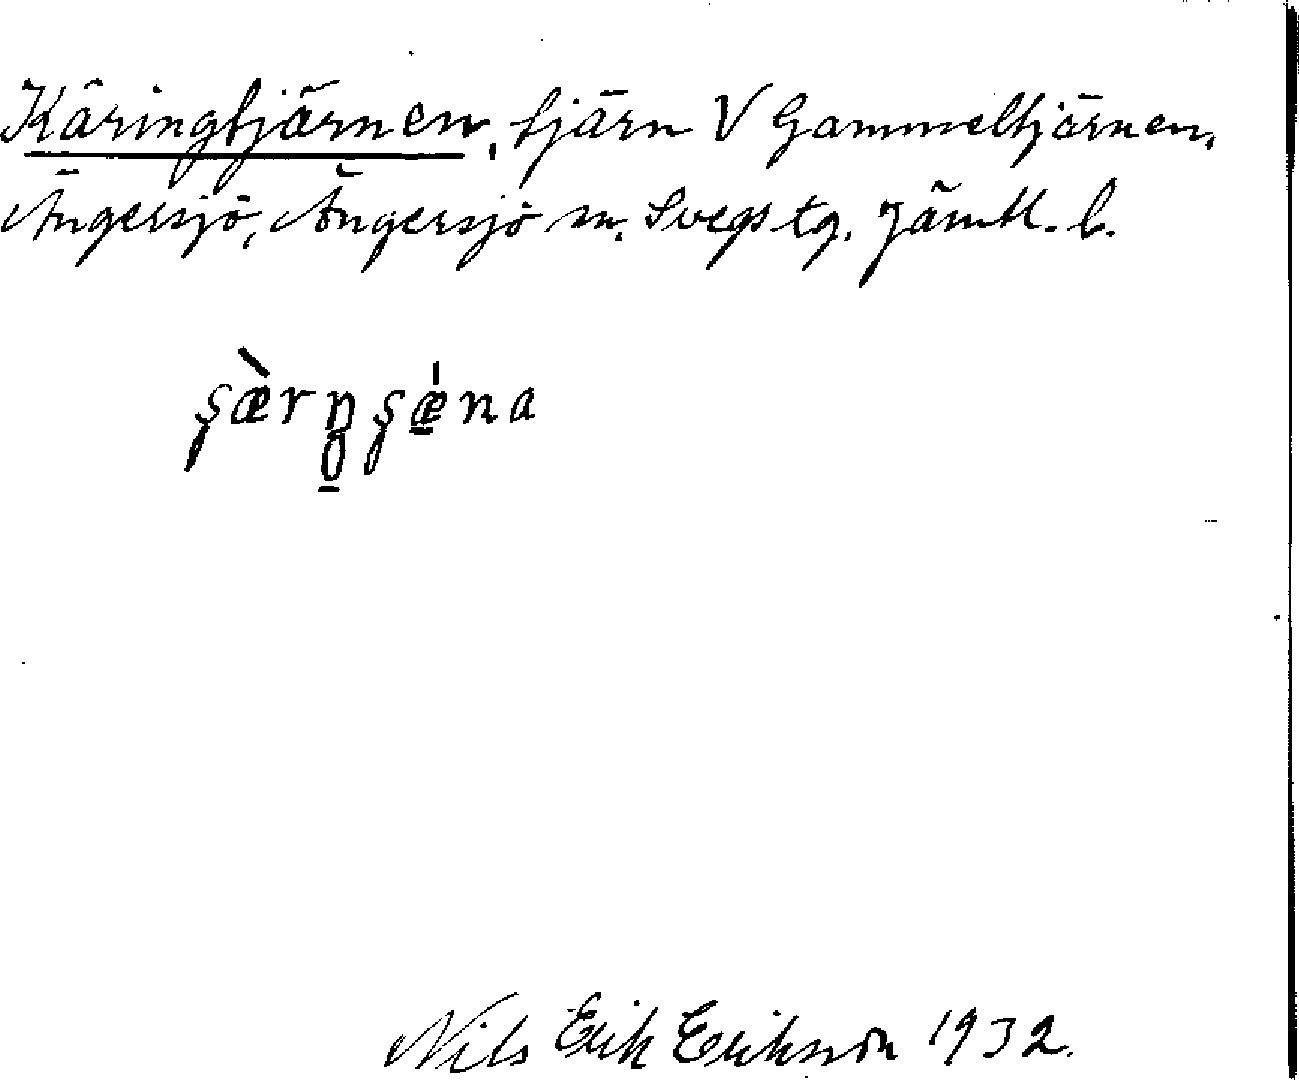 Käringtjärnen, tjärn V Gammeltjärnen,
Ängersjö, Ängersjö sn. Svegs tg. Jämtl. l.
Nils Erik Erikson 1932.